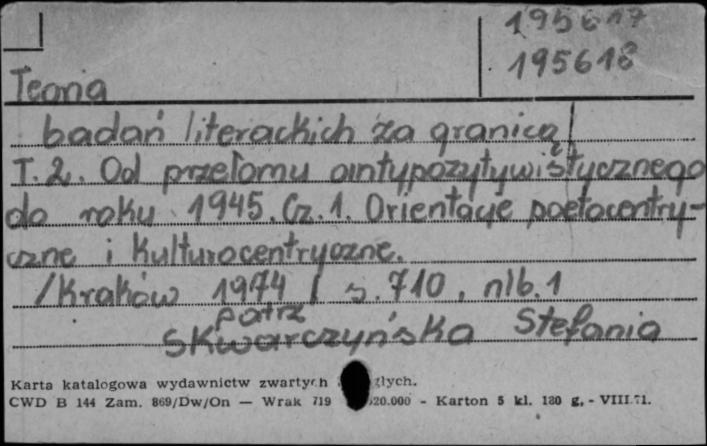 195617
195618
Teoria
badań literackich za granicą
T. 2. Od przełomu antypozytywistycznego
do roku 1945. Cz. 1. Orientacje poetocentry-
czne i kulturocentryczne.
/Kraków 1974/ s. 710, nlb. 1
patrz
Skwarczyńska Stefania
Karta katalogowa wydawnictw zwartych
CWD B 144 Zam. 869/Dw/On — Wrak 719 20.000 - Karton 5 kl. 180 g. - VIII.71.